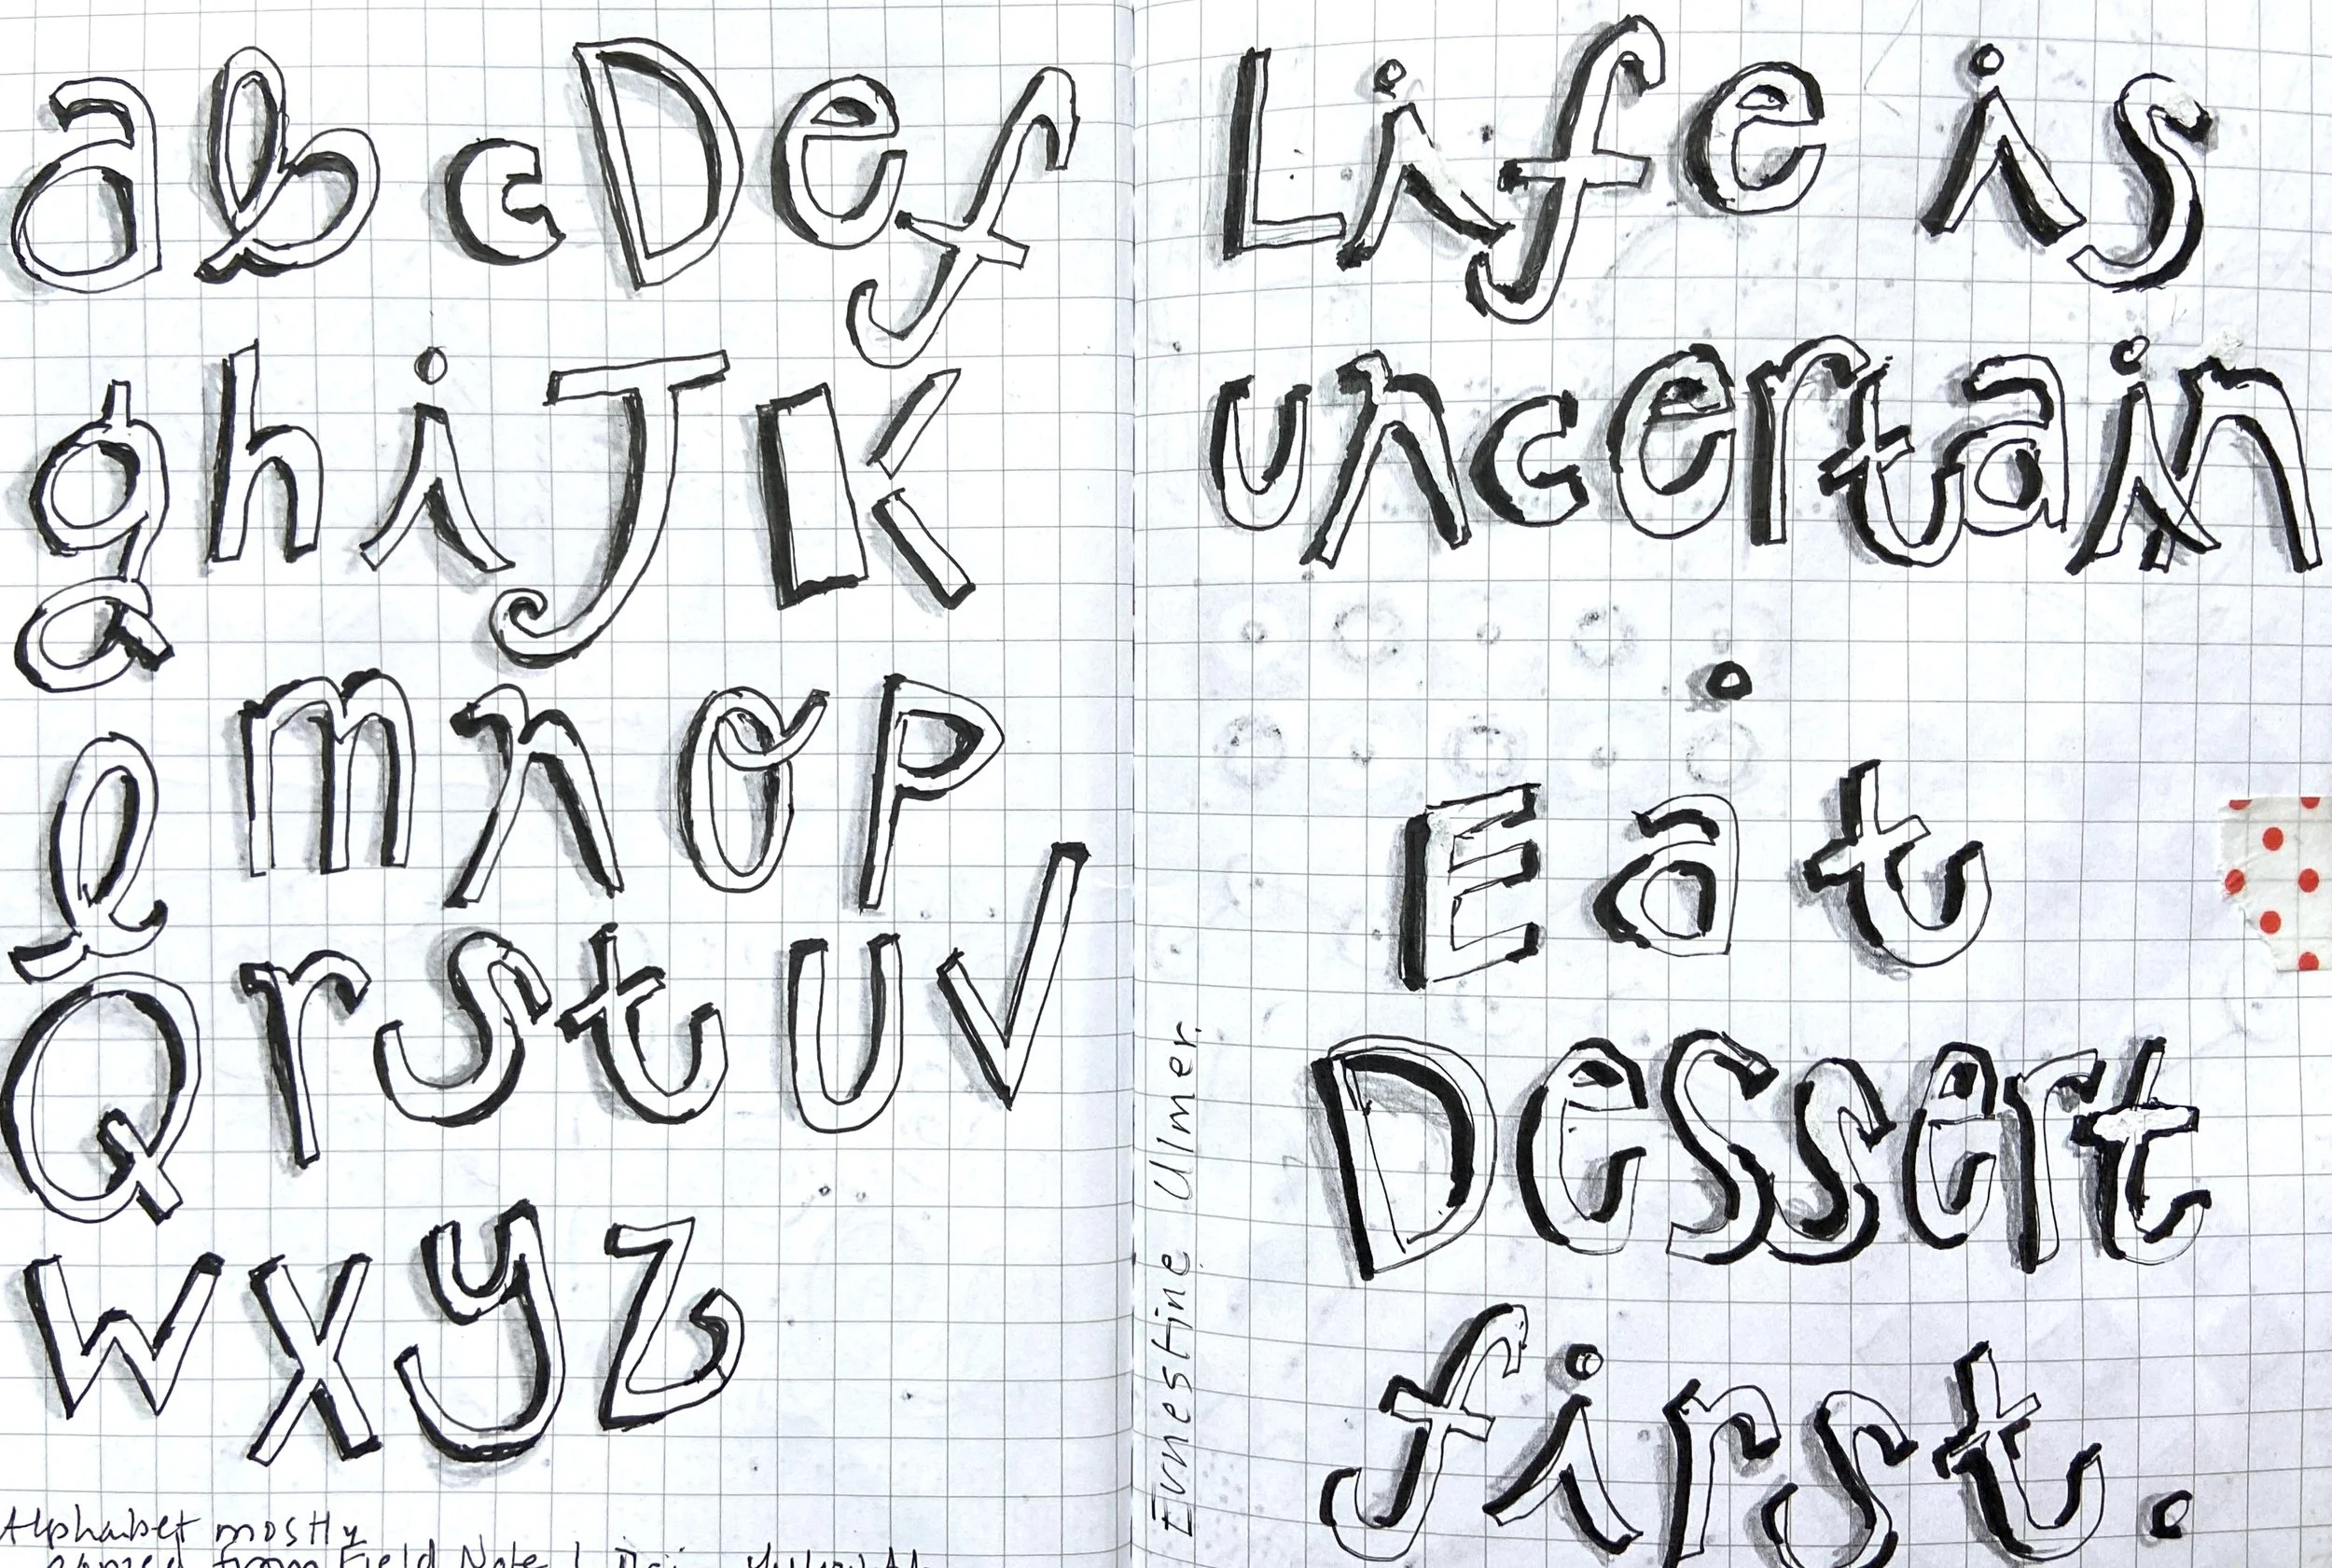 abcDef
ghiJK
lmnopQrstuv
wxyz
Alphabet mostly
copied from Field Note
Life is
uncertain
.
Eat
Dessert
first.
Ernestine Ulmer.